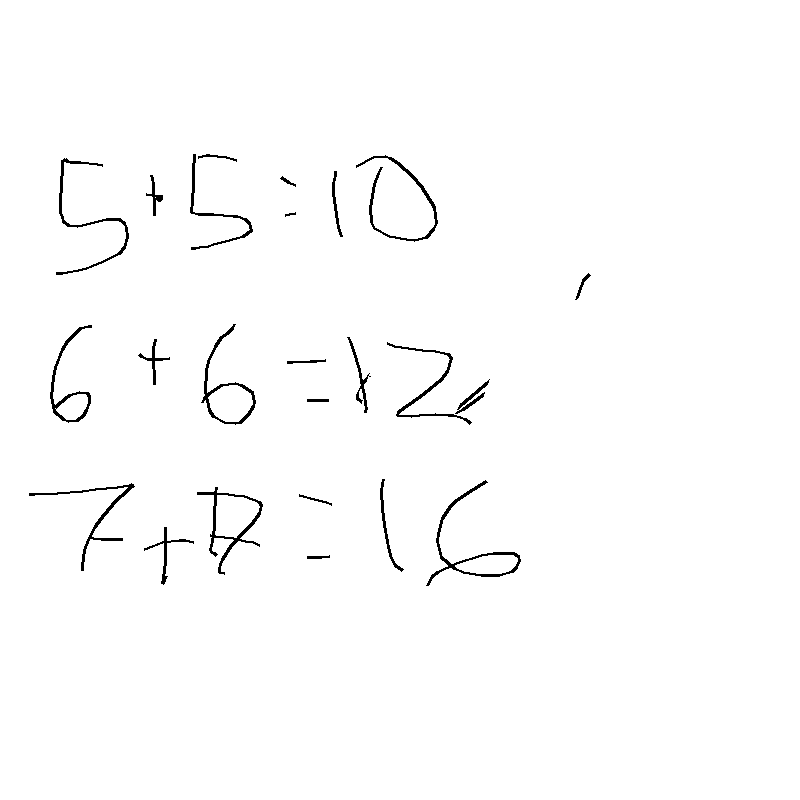 5+5=10
6+6=12
7+7=16